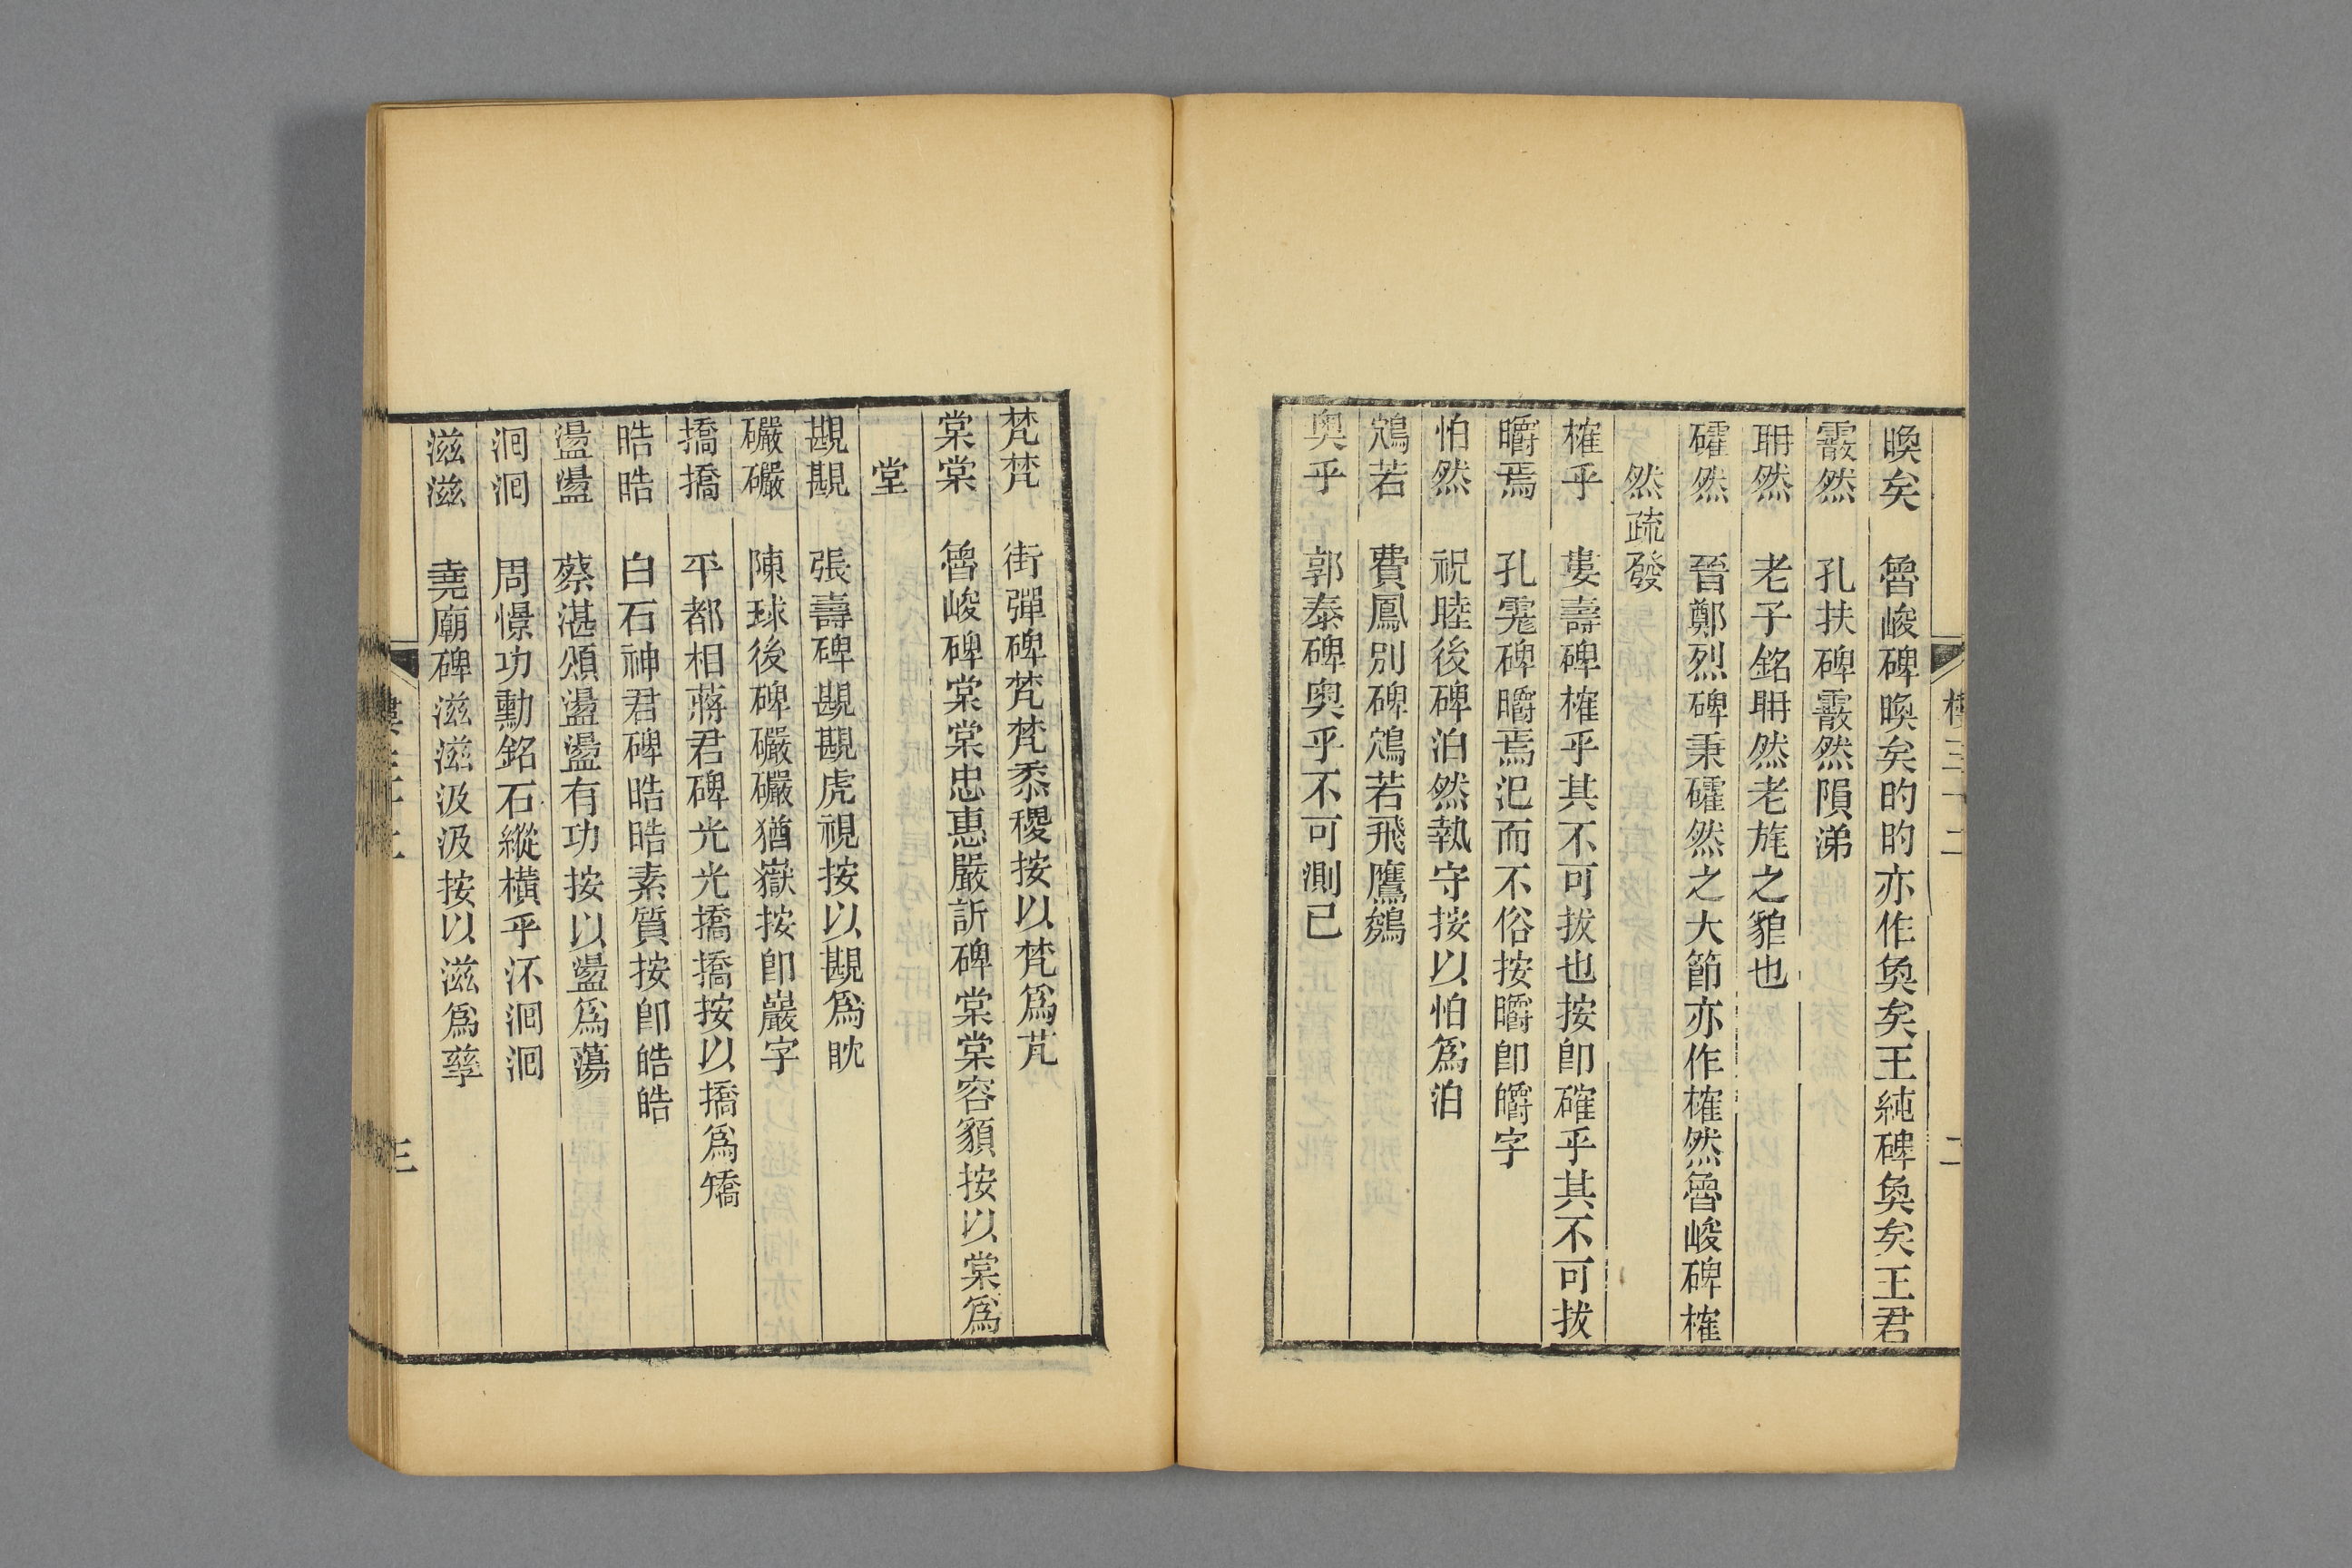 晚矣 魯峻碑晚矣旳旳亦作奐矣王純碑奐矣王君
霰然 孔扶碑霰然隕涕
聃然 老子銘聃然老旄之貌也
礭然 晉鄭烈碑秉礭然之大節亦作榷然魯峻碑榷
然疏發
榷乎 婁壽碑榷乎其不可拔也按卽確乎其不可拔
皭焉 孔霮碑皭焉汜而不俗按皭卽皭字
怕然 祝睦後碑泊然執守按以怕爲泊
鴆若 費鳳別碑鴆若飛鷹鷂
奧乎 郭泰碑奧乎不可測已
梵梵 街彈碑梵梵黍稷按以梵爲芃
棠棠 魯峻碑棠棠忠惠嚴訢碑棠棠容額按以棠爲
堂
覥覥 張壽碑覥覥虎視按以覥爲眈
礹礹 陳球後碑礹礹猶嶽按卽巖字
撟撟 平都相蔣君碑光光撟撟按以撟爲矯
晧晧 白石神君碑晧晧素質按卽皓皓
盪盪 蔡湛頌盪盪有功按以盪爲蕩
洄洄 周憬功勳銘石縱橫乎洄洄
滋滋 堯廟碑滋滋汲汲按以滋爲孳
三